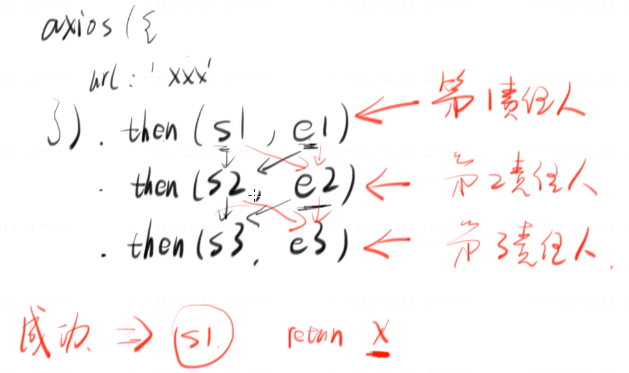 axios({
url: 'xxx'
}).then(s1, e1) ← 第1责任人
.then(s2, e2) ← 第2责任人
.then(s3, e3) ← 第3责任人.
成功 ⇒ s1 return x